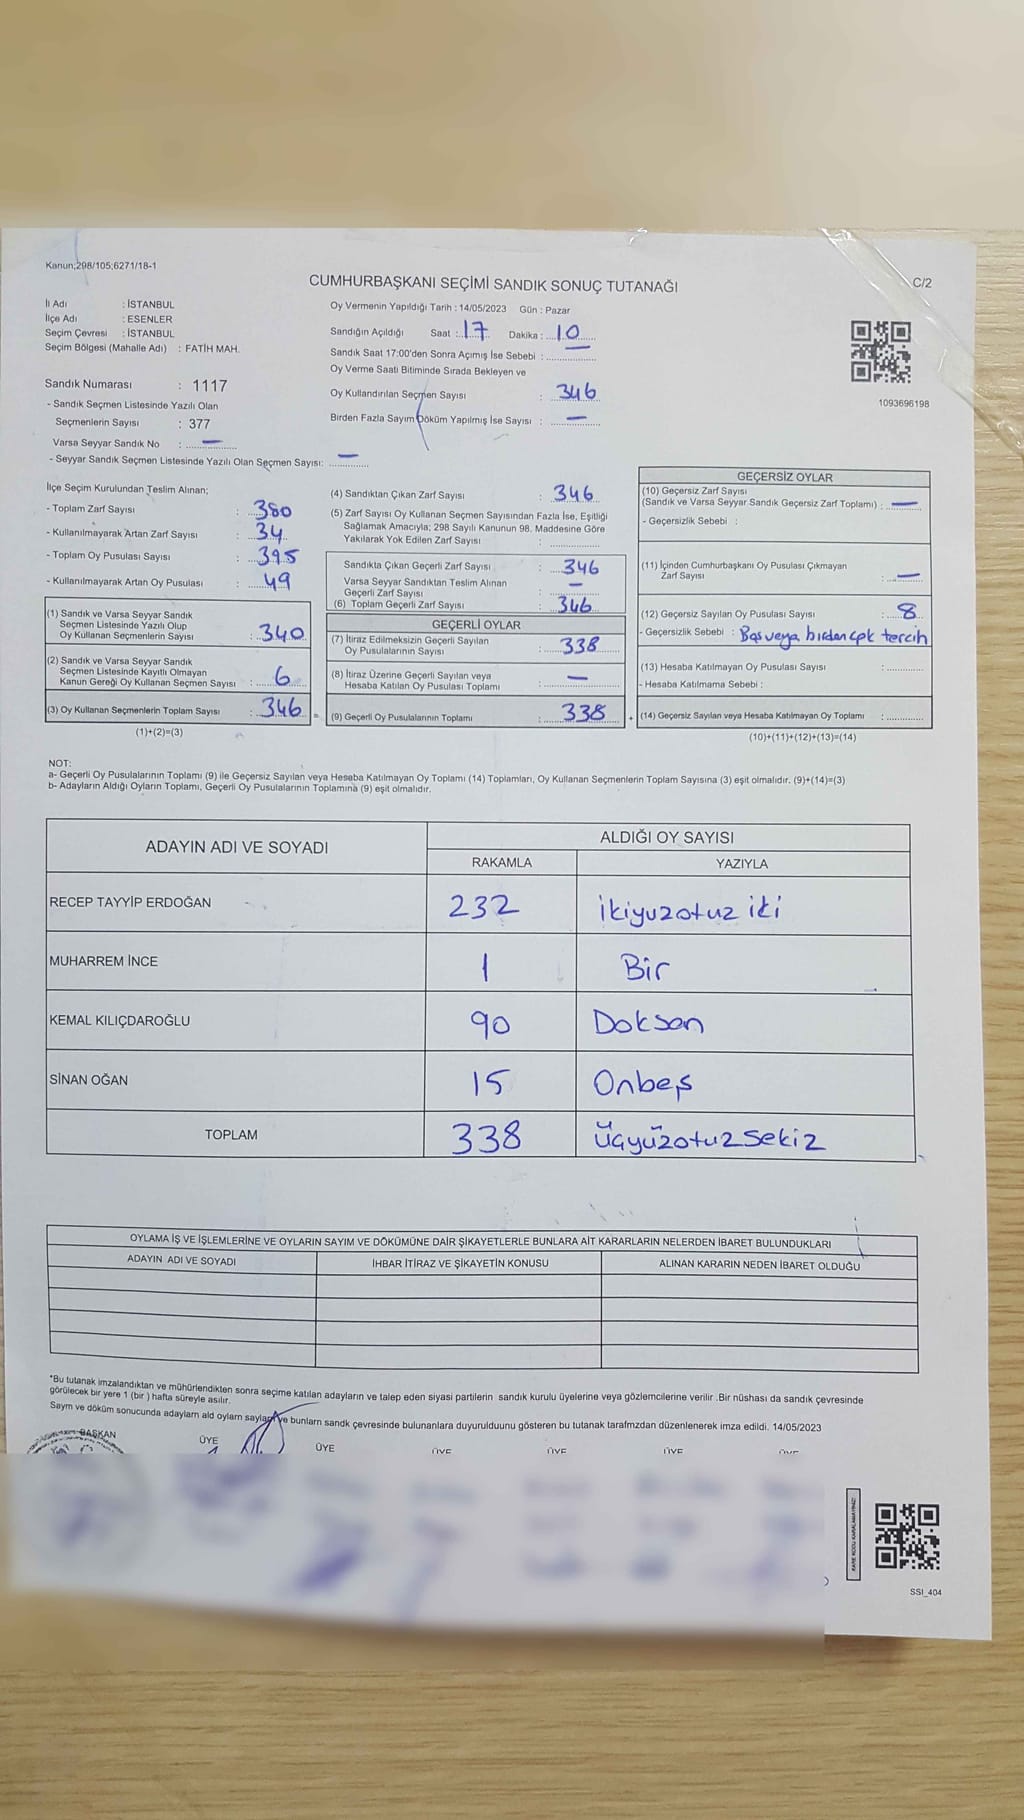 Kanun;298/105;6271/18-1
CUMHURBAŞKANI SEÇİMİ SANDIK SONUÇ TUTANAĞI
C/2
İl Adı : İSTANBUL
İlçe Adı : ESENLER
Seçim Çevresi : İSTANBUL
Seçim Bölgesi (Mahalle Adı) : FATİH MAH.
Sandık Numarası : 1117
- Sandık Seçmen Listesinde Yazılı Olan
Seçmenlerin Sayısı : 377
Varsa Seyyar Sandık No : —
- Seyyar Sandık Seçmen Listesinde Yazılı Olan Seçmen Sayısı: —
Oy Vermenin Yapıldığı Tarih : 14/05/2023 Gün : Pazar
Sandığın Açıldığı Saat : 17 Dakika : 10
Sandık Saat 17:00'den Sonra Açımış İse Sebebi : —
Oy Verme Saati Bitiminde Sırada Bekleyen ve
Oy Kullandırılan Seçmen Sayısı : 346
Birden Fazla Sayım Döküm Yapılmış İse Sayısı : —
1093696198
İlçe Seçim Kurulundan Teslim Alınan;
- Toplam Zarf Sayısı : 380
- Kullanılmayarak Artan Zarf Sayısı : 34
- Toplam Oy Pusulası Sayısı : 395
- Kullanılmayarak Artan Oy Pusulası : 49
(1) Sandık ve Varsa Seyyar Sandık
Seçmen Listesinde Yazılı Olup
Oy Kullanan Seçmenlerin Sayısı : 340
(2) Sandık ve Varsa Seyyar Sandık
Seçmen Listesinde Kayıtlı Olmayan
Kanun Gereği Oy Kullanan Seçmen Sayısı : 6
(3) Oy Kullanan Seçmenlerin Toplam Sayısı : 346 =
(1)+(2)=(3)
(4) Sandıktan Çıkan Zarf Sayısı : 346
(5) Zarf Sayısı Oy Kullanan Seçmen Sayısından Fazla İse, Eşitliği
Sağlamak Amacıyla; 298 Sayılı Kanunun 98. Maddesine Göre
Yakılarak Yok Edilen Zarf Sayısı :
Sandıkta Çıkan Geçerli Zarf Sayısı : 346
Varsa Seyyar Sandıktan Teslim Alınan
Geçerli Zarf Sayısı : —
(6) Toplam Geçerli Zarf Sayısı : 346
GEÇERLİ OYLAR
(7) İtiraz Edilmeksizin Geçerli Sayılan
Oy Pusulalarının Sayısı : 338
(8) İtiraz Üzerine Geçerli Sayılan veya
Hesaba Katılan Oy Pusulası Toplamı : —
(9) Geçerli Oy Pusulalarının Toplamı : 338 +
GEÇERSİZ OYLAR
(10) Geçersiz Zarf Sayısı
(Sandık ve Varsa Seyyar Sandık Geçersiz Zarf Toplamı) : —
- Geçersizlik Sebebi :
(11) İçinden Cumhurbaşkanı Oy Pusulası Çıkmayan
Zarf Sayısı : —
(12) Geçersiz Sayılan Oy Pusulası Sayısı : 8
- Geçersizlik Sebebi : Boş veya birden çok tercih
(13) Hesaba Katılmayan Oy Pusulası Sayısı :
- Hesaba Katılmama Sebebi :
(14) Geçersiz Sayılan veya Hesaba Katılmayan Oy Toplamı :
(10)+(11)+(12)+(13)=(14)
NOT:
a- Geçerli Oy Pusulalarının Toplamı (9) ile Geçersiz Sayılan veya Hesaba Katılmayan Oy Toplamı (14) Toplamları, Oy Kullanan Seçmenlerin Toplam Sayısına (3) eşit olmalıdır. (9)+(14)=(3)
b- Adayların Aldığı Oyların Toplamı, Geçerli Oy Pusulalarının Toplamına (9) eşit olmalıdır.
ADAYIN ADI VE SOYADI
ALDIĞI OY SAYISI
RAKAMLA YAZIYLA
RECEP TAYYİP ERDOĞAN 232 ikiyuzotuz iki
MUHARREM İNCE 1 Bir
KEMAL KILIÇDAROĞLU 90 Doksan
SİNAN OĞAN 15 Onbeş
TOPLAM 338 Üçyüzotuzsekiz
OYLAMA İŞ VE İŞLEMLERİNE VE OYLARIN SAYIM VE DÖKÜMÜNE DAİR ŞİKAYETLERLE BUNLARA AİT KARARLARIN NELERDEN İBARET BULUNDUKLARI
ADAYIN ADI VE SOYADI İHBAR İTİRAZ VE ŞİKAYETİN KONUSU ALINAN KARARIN NEDEN İBARET OLDUĞU
*Bu tutanak imzalandıktan ve mühürlendikten sonra seçime katılan adayların ve talep eden siyasi partilerin sandık kurulu üyelerine veya gözlemcilerine verilir .Bir nüshası da sandık çevresinde
görülecek bir yere 1 (bir ) hafta süreyle asılır.
Sayım ve döküm sonucunda adayların ald oyların sayları ve bunların sandk çevresinde bulunanlara duyurulduunu gösteren bu tutanak tarafmzdan düzenlenerek imza edildi. 14/05/2023
BAŞKAN ÜYE ÜYE ÜYE ÜYE ÜYE ÜYE
SSI_404